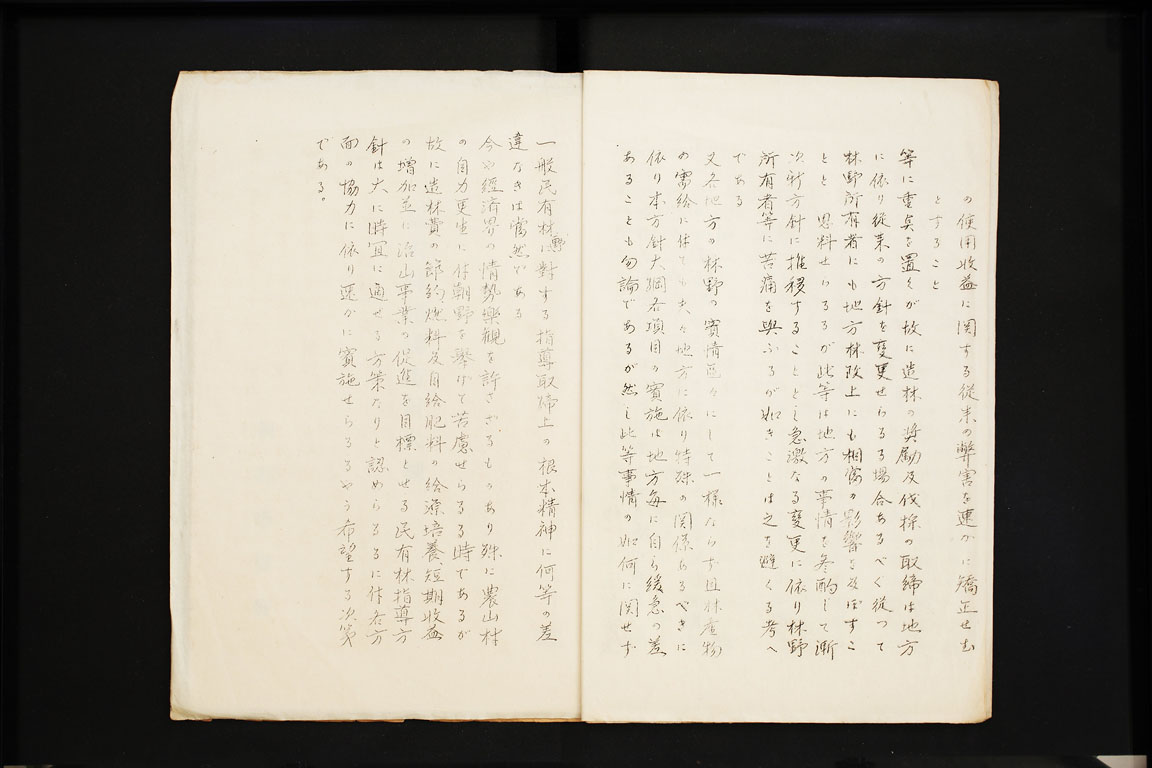 の使用收益に関する従来の弊害を速かに矯正せむ
とすること
等に重点を置くが故に造林の奨勵及伐採の取締は地方
に依り従業の方針を変更せらるる場合あるべく従つて
林野所有者にも地方林政上にも相當の影響を及ぼすこ
とと思料せらるるが此等は地方の事情を参酌して漸
次新方針に推移することとし急激なる変更に依り林野
所有者等に苦痛を與ふるが如きことは之を避くる考へ
である
又各地方の林野の實情區々にして一様ならず且林産物
の需給に付ても夫々地方に依り特殊の関係あるべきに
依り本方針大綱各項目の實施は地方毎に自ら緩急の差
あることも勿論であるが然し此等事情の如何に関せず
一般民有林に對する指導取締上の根本精神に何等の差
違なきは當然である
今や經済界の情勢樂観を許さざるものあり殊に農山村
の自力更生に付朝野を擧げて苦慮せらるる時であるが
故に造林費の節約燃料及自給肥料の給源培養短期收益
の増加並に治山事業の促進を目標とせる民有林指導方
針は大に時宜に適せる方策なりと認めらるるに付各方
面の協力に依り速かに實施せらるるやう希望する次第
である。